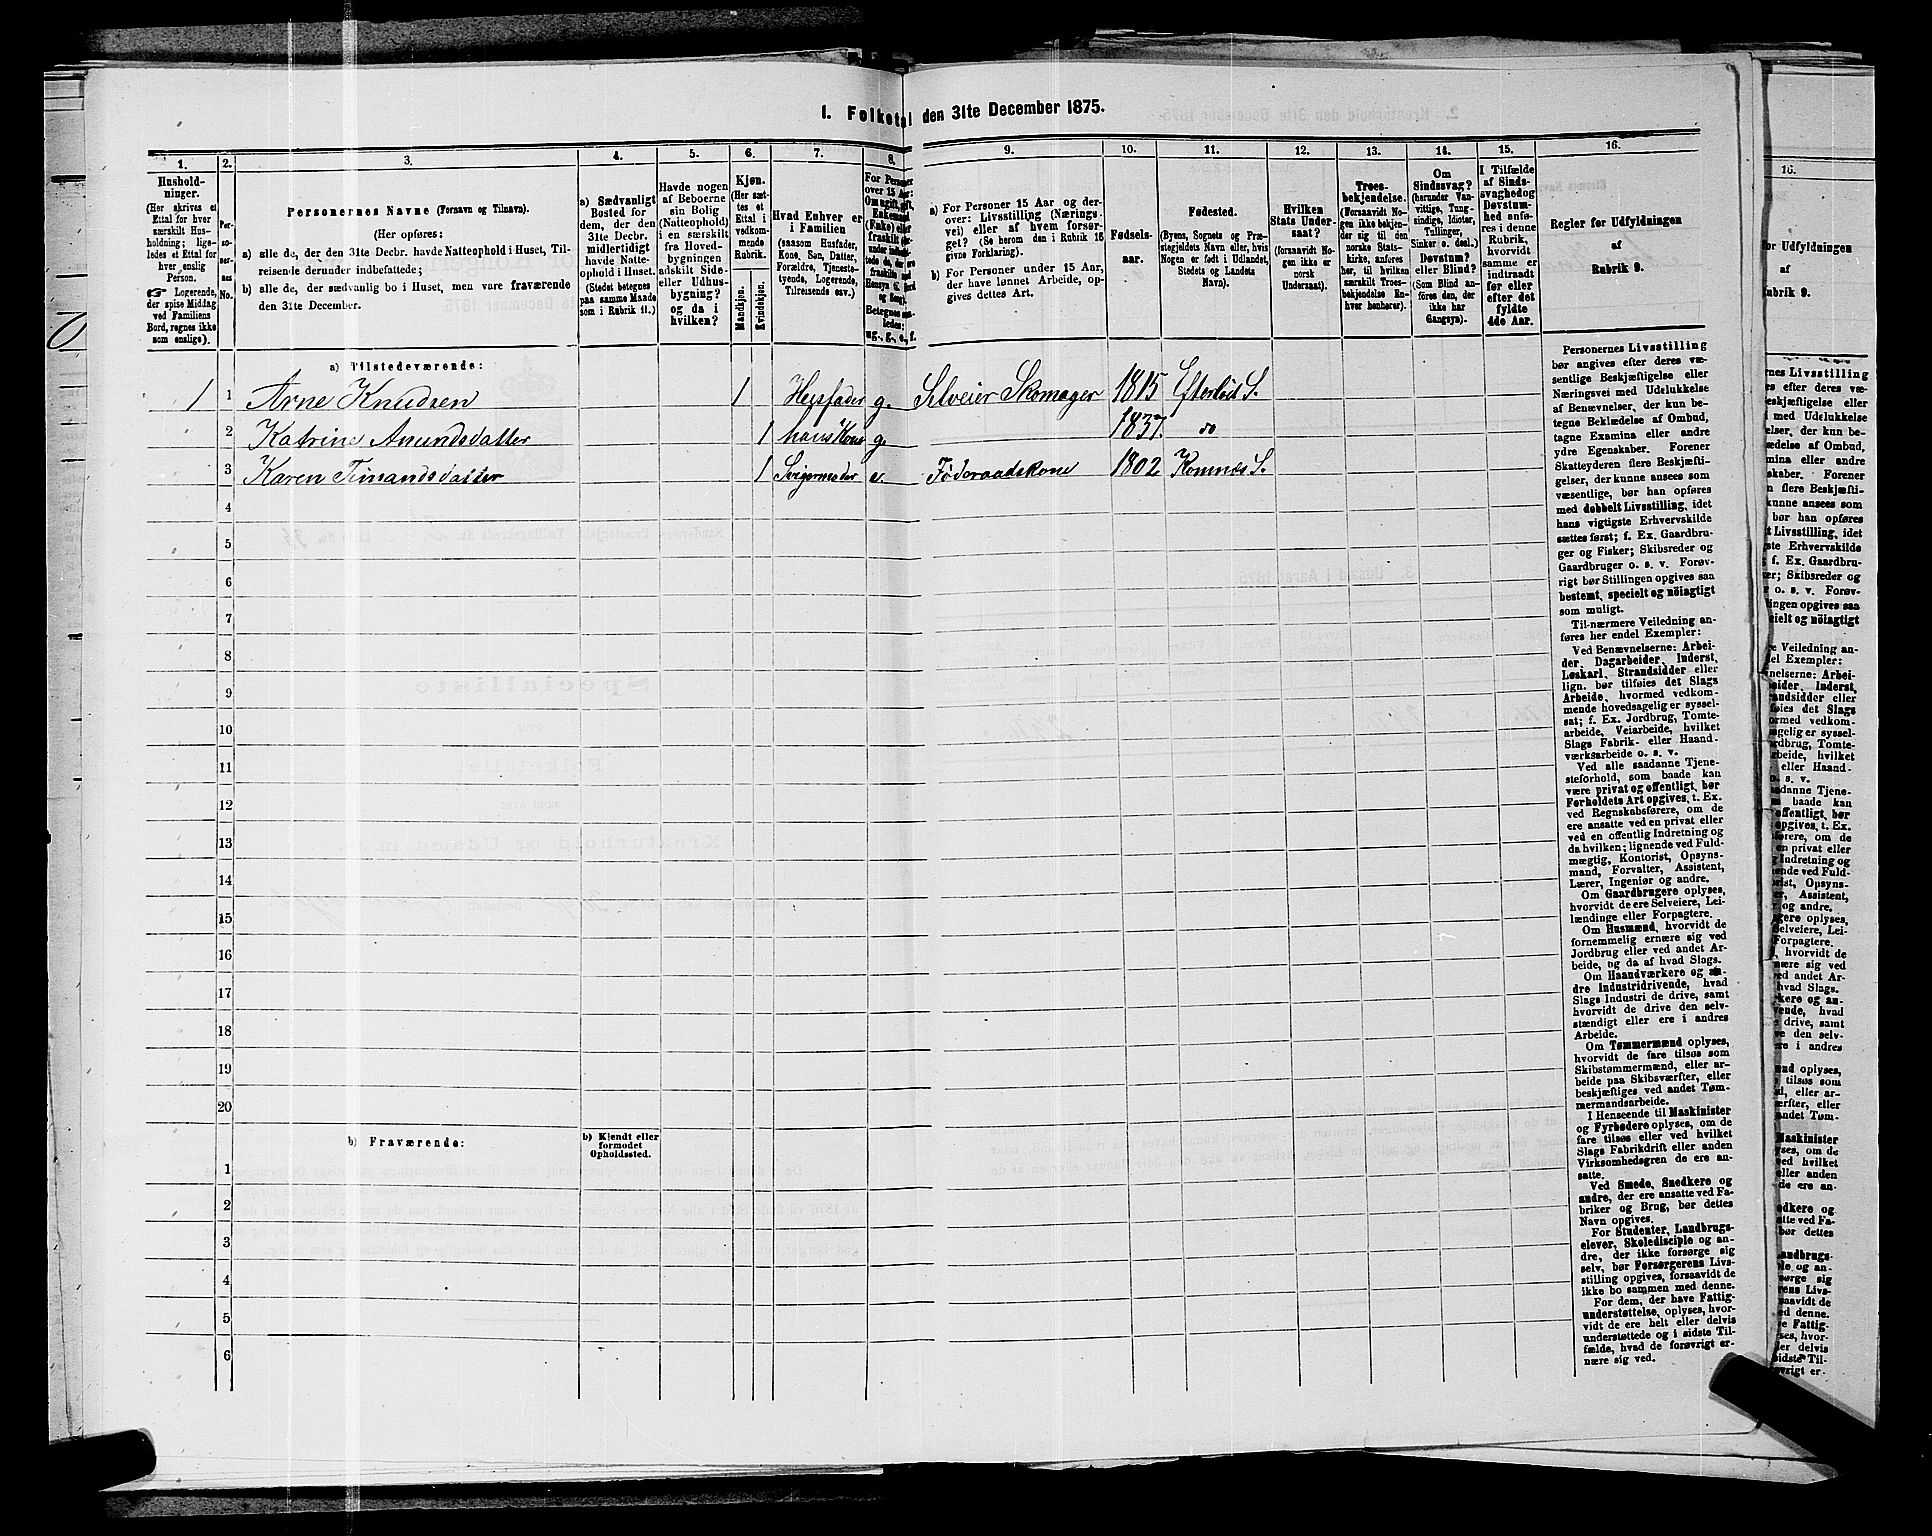 1. Folketal den 31te December 1875.
1. 2. 3. 4. 5. 6. 7. 8. 9. 10. 11. 12. 13. 14. 15. 16.
Hushold-
ninger.
(Her skrives et
Ettal for hver
særskilt Hus-
holdning; lige-
ledes et Ettal for
hver enslig
Person.
☞ Logerende,
der spise Middag
ved Familiens
Bord, regnes ikke
som enslige).
Per-
so-
ner-
nes
No.
Personernes Navne (Fornavn og Tilnavn).
(Her opføres:
a) alle de, der den 31te Decbr. havde Natteophold i Huset, Til-
reisende derunder indbefattede;
b) alle de, der sædvanlig bo i Huset, men vare fraværende
den 31te December.
a) Sædvanligt
Bosted for
dem, der den
31te Decbr.
midlertidigt
havde Natte-
ophold i Huset.
(Stedet betegnes
paa samme Maade
som i Rubrik 11.)
Havde nogen
af Beboerne
sin Bolig
(Natteophold)
i en særskilt
fra Hoved-
bygningen
adskilt Side-
eller Udhus-
bygning?
og da i
hvilken?
Kjøn.
(Her sæt-
tes et
Ettal i
vedkom-
mende
Rubrik.
Mandkjøn.
Kvindekjøn.
Hvad Enhver er
i Familien
(saasom Husfader,
Kone, Søn, Datter,
Forældre, Tjeneste-
tyende, Logerende,
Tilreisende osv.)
For Personer
over 15 Aar:
Om ugift, gift,
Enkemand
(Enke) eller
fraskilt
ug., g., e., f.
a) For Personer 15 Aar og der-
over: Livsstilling (Nærings-
vei) eller af hvem forsør-
get? (Se herom den i Rubrik 16
givne Forklaring).
b) For Personer under 15 Aar,
der have lønnet Arbeide, op-
gives dettes Art.
Fødsels-
aar.
Fødested.
(Byens, Sognets og Præ-
stegjeldets Navn eller, hvis
Nogen er født i Udlandet,
Stedets og Landets
Navn).
Hvilken
Stats Under-
saat?
(forsaavidt No-
gen ikke er
norsk
Undersaat).
Troes-
bekjendelse.
(Forsaavidt No-
gen ikke bekjen-
der sig til den
norske Stats-
kirke, anføres
her, til hvilken
særskilt Troes-
bekjendelse En-
hver henhører).
Om
Sindssvag?
(herunder Van-
vittige, Tung-
sindige, Idioter,
Tullinger,
Sinker o. desl.)
Døvstum?
eller Blind?
(Som Blind an-
føres den, der
ikke har
Gangsyn).
I Tilfælde
af Sinds-
svaghed og
Døvstum-
hed anfø-
res i denne
Rubrik,
hvorvidt
samme er
indtraadt
før eller
efter det
fyldte
4de Aar.
Regler før Udfyldningen
af
Rubrik 9.
a) Tilstedeværende:
1 1 Arne Knudsen 1 Husfader g. Selveier Skomager 1815 Efterløt S.
2 Katrine Amundsdatter 1 hans Kone g. 1837. do
3 Karen Timandsdatter 1 Svigermoder e. Føderaadskone 1802 Komnæs S.
4
5
6
7
8
9
10
11
12
13
14
15
16
17
18
19
20
b) Fraværende:
b) Kjendt eller
formodet
Opholdssted.
1
2
3
4
5
6
Personernes Livsstilling
bør angives efter deres væ-
sentlige Beskjæftigelse eller
Næringsvei med Udelukkelse
af Benævnelser, der kun be-
tegne Beklædelse af Ombud,
tagne Examina eller andre
ydre Egenskaber. Forener
Skatteyderen flere Beskjæfti-
gelser, der kunne ansees som
væsentlige, bør han opføres
med dobbelt Livsstilling, idet
hans vigtigste Erhvervskilde
sættes først; f. Ex. Gaardbru-
ger og Fisker; Skibsreder og
Gaardbruger o. s. v. Forøv-
rigt bør Stillingen opgives saa
bestemt, specielt og nöiagtigt
som muligt.
Til nærmere Veiledning an-
føres her endel Exempler:
Ved Benævnelserne: Arbei-
der, Dagarbeider, Inderst,
Løskarl, Strandsidder eller
lign. bør tilføies det Slags
Arbeide, hvormed vedkom-
mende hovedsagelig er syssel-
sat; f. Ex. Jordbrug, Tomte-
arbeide, Veiarbeide, hvilket
Slags Fabrik- eller Haand-
værksarbeide o. s. v.
Ved alle saadanne Tjene-
steforhold, som baade kan
være privat og offentligt, bør
Forholdets Art opgives, t. Ex.
ved Regnskabsførere, om de
ere ansatte ved en privat eller
ved en offentlig Indretning og
da hvilken; lignende ved Fuld-
mægtig, Kontorist, Opsyns-
mand, Forvalter, Assistent,
Lærer, Ingeniør og andre.
Om Gaardbrugere oplyses,
hvorvidt de ere Selveiere, Lei-
lændinge eller Forpagtere.
Om Husmænd, hvorvidt de
fornemmelig ernære sig ved
Jordbrug eller ved andet Ar-
beide, og da af hvad Slags.
Om Haandværkere og an-
dre Industridrivende, hvad
Slags Industri de drive, samt
hvorvidt de drive den selv-
stændigt eller ere i andres
Arbeide.
Om Tømmermænd oplyses,
hvorvidt de fare tilsøs som
Skibstømmermænd, eller ar-
beide paa Skibsværfter, eller
beskjæftiges ved andet Tøm-
mermandsarbeide.
I Henseende til Maskinister
og Fyrbødere oplyses, om de
fare tilsøs eller ved hvilket
Slags Fabrikdrift eller anden
Virksomhedsgren de ere an-
satte.
Ved Smede, Snedkere og
andre, der ere ansatte ved Fa-
briker og Brug, bør dettes
Navn opgives.
For Studenter, Landbrugs-
elever, Skoledisciple og an-
dre, der ikke forsørge sig
selv, bør Forsørgerens Livs-
stilling opgives, forsaavidt de
ikke bo sammen med denne.
For dem, der have Fattig-
understøttelse, oplyses, hvor-
vidt de ere helt eller delvis
understøttede og i sidste Til-
fælde, hvad de forøvrigt er-
nære sig ved.